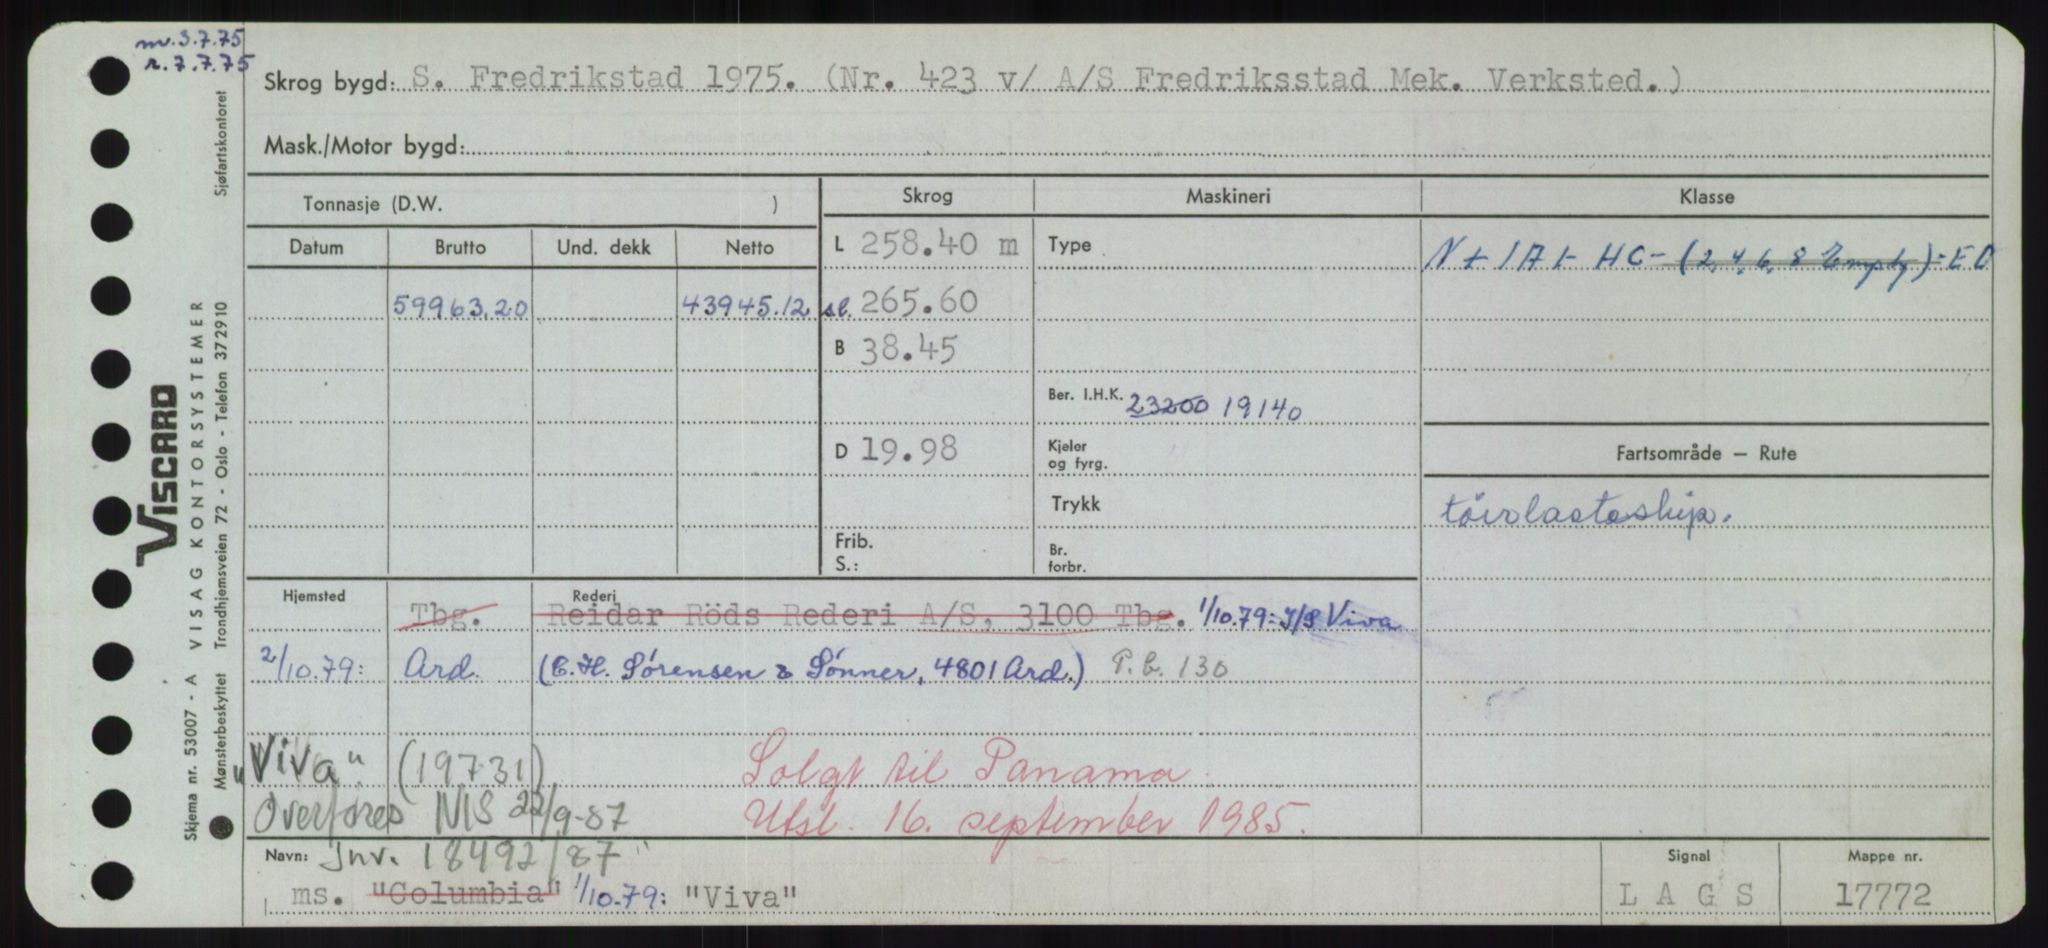 nv. 3.7.75
r. 7.7.75
Skrog bygd: S. Fredrikstad 1975. (Nr. 423 v/ A/S Fredriksstad Mek. Verksted.)
Mask./Motor bygd:
Tonnasje (D.W. )
Skrog
Maskineri
Klasse
Datum Brutto Und. dekk Netto
L 258.40 m
Type
N + 1A1- HC- (2, 4, 6, 8 Empty)-EO
59963.20 43945.12
sl. 265.60
B 38.45
Ber. I.H.K. 23200 19140
D 19.98
Kjeler
og fyrg.
Fartsområde – Rute
Trykk
törrlasteskip.
Frib.
S.:
Br.
forbr.
Hjemsted Rederi
Tbg. Reidar Röds Rederi A/S, 3100 Tbg. 1/10.79: I/S Viva
2/10.79: Ard. (C.H. Sørensen & Sønner, 4801 Ard.) P.b. 130
"Viva" (19731) Solgt til Panama
Overføres NIS 22/9-87 Utsl. 16. september 1985.
Navn: Jnr. 18492/87"
ms. "Columbia" 1/10.79: "Viva"
Signal
L A G S
Mappe nr.
17772
VISCARD
Skjema nr. 53007 - A VISAG KONTORSYSTEMER
Mønsterbeskyttet Trondhjemsveien 72 - Oslo - Telefon 372910 Sjøfartskontoret